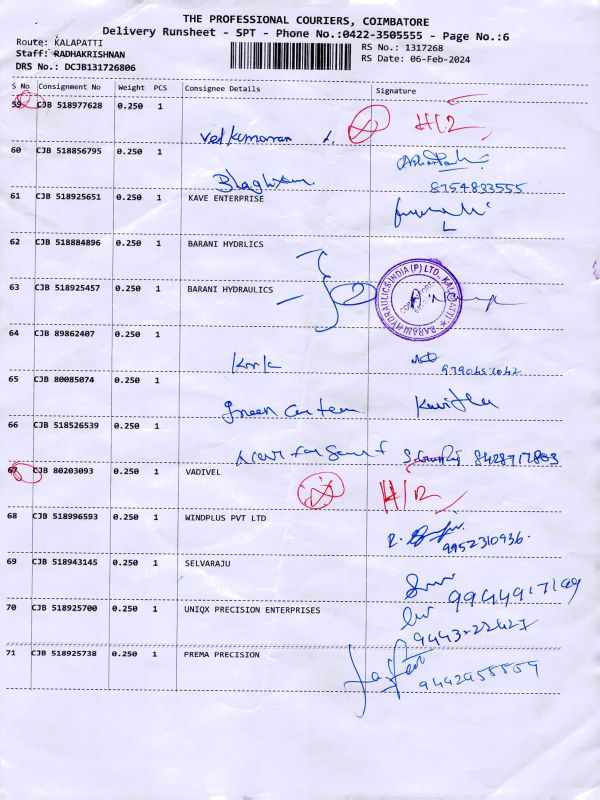 THE PROFESSIONAL COURIERS, COIMBATORE
Delivery Runsheet - SPT - Phone No.:0422-3505555 - Page No.:6
Route: KALAPATTI
RS No.: 1317268
Staff: RADHAKRISHNAN
RS Date: 06-Feb-2024
DRS No.: DCJB131726806
S No Consignment No Weight PCS Consignee Details Signature
59 CJB 518977628 0.250 1
Velkumaran H/2
60 CJB 518856795 0.250 1
8754833555
61 CJB 518925651 0.250 1 KAVE ENTERPRISE
62 CJB 518884896 0.250 1 BARANI HYDRLICS
63 CJB 518925457 0.250 1 BARANI HYDRAULICS 2
BARANI HYDRAULICS INDIA (P) LTD., KALAPATTI
64 CJB 89862407 0.250 1
65 CJB 80085074 0.250 1
Green Canteen Kavitha
66 CJB 518526539 0.250 1
67 CJB 80203093 0.250 1 VADIVEL H/2
68 CJB 518996593 0.250 1 WINDPLUS PVT LTD
9952310936
69 CJB 518943145 0.250 1 SELVARAJU
70 CJB 518925700 0.250 1 UNIQX PRECISION ENTERPRISES
71 CJB 518925738 0.250 1 PREMA PRECISION